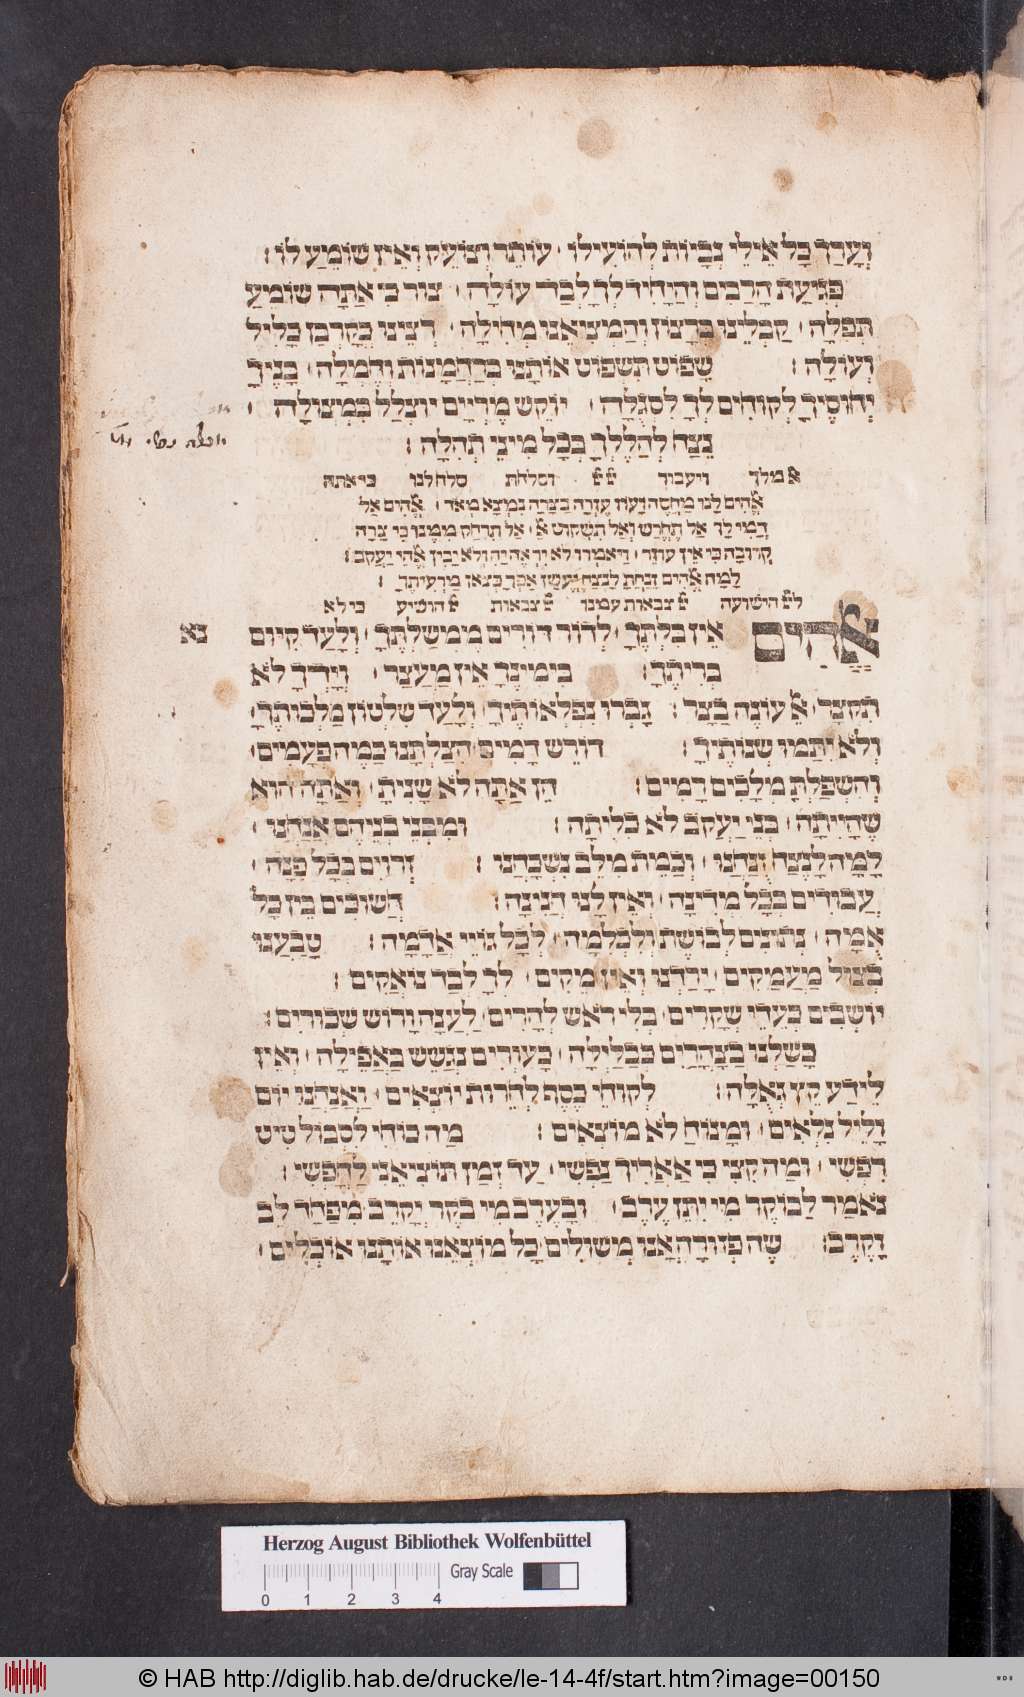 וְעָרַךְ כָּל אֵילֵי נְבָיוֹת לְהוֹעִילוֹ · עוֹתֵר וְצוֹעֵק וְאֵין שׁוֹמֵעַ לוֹ :
כִּפְגִיעַת הָרַבִּים וְהַיָּחִיד לְךָ לְבַד עוֹלָה · צוּר כִּי אַתָּה שׁוֹמֵעַ
תְּפִלָּה · קַבְּלֵינוּ בְּרָצוֹן וְהַמְצִיאֵנוּ מְחִילָה · רְצֵינוּ כְּקָרְבַּן כָּלִיל
וְעוֹלָה : שָׁפוֹט תִּשְׁפּוֹט אוֹתָנוּ בְּרַחֲמָנוּת וְחֶמְלָה · בָּנֶיךָ
יְחוּסֶיךָ לְקוּחִים לְךָ לִסְגֻלָּה · יוֹקֵשׁ מֶרְיָם יוּצְלַל בִּמְצוּלָה
נֵצַח לְהַלֶּלְךָ בְּכָל מִינֵי תְהִלָּה :
אל מלך ויעבור וסלחת סלח לנו כי אתה
אֱלֹהִים לָנוּ מַחֲסֶה וָעוֹז עֶזְרָה בְצָרָה נִמְצָא מְאֹד · אֱלֹהִים אַל
דֳּמִי לָךְ אַל תֶּחֱרַשׁ וְאַל תִּשְׁקוֹט אֵל · אַל תִּרְחַק מִמֶּנּוּ כִּי צָרָה
קְרוֹבָה כִּי אֵין עוֹזֵר · וַיֹּאמְרוּ לֹא יִרְאֶה יָּהּ וְלֹא יָבִין אֱלֹהֵי יַעֲקֹב :
לָמָה אֱלֹהִים זָנַחְתָּ לָנֶצַח יֶעְשַׁן אַפְּךָ בְּצֹאן מַרְעִיתֶךָ :
לה׳ הישועה ה׳ צבאות עמנו ה׳ צבאות ה׳ הושיע כי לא
אֱלֹהִים אֵין בִּלְתֶּךָ · לְדוֹר דּוֹרִים מֶמְשַׁלְתֶּךָ · וְלָעַד קִיּוּם נא
בְּרִיתֶךָ : בִּימִינְךָ אֵין מַעֲצַר · וְיָדְךָ לֹא
תִקְצַר · אֵל עוֹנֶה בַצָּר : גָּבְרוּ נִפְלְאוֹתֶיךָ · וְלָעַד שִׁלְטוֹן מַלְכוּתֶךָ ·
וְלֹא יִתַּמּוּ שְׁנוֹתֶיךָ : דּוֹרֵשׁ דָּמִים הִצַּלְתָּנוּ כַּמֶּה פְעָמִים ·
וְהִשְׁפַּלְתָּ מְלָכִים רָמִים : הֵן אַתָּה לֹא שָׁנִיתָ · וְאַתָּה הוּא
שֶׁהָיִיתָ · בְּנֵי יַעֲקֹב לֹא כִלִּיתָ : וּמִבְּנֵי בְנֵיהֶם אֲנַחְנוּ ·
לָמָּה לָנֶצַח זְנַחְנוּ · וּכְמֵת מִלֵּב נִשְׁכַּחְנוּ : זְרוּיִם בְּכָל פִּנָּה ·
עֲבוּרִים בְּכָל מְדִינָה · וְאֵין לָנוּ חֲנִינָה : חֲשׁוּבִים בֵּין כָּל
אֻמָּה · נְתוּנִים לְבוֹשֶׁת וְלִכְלִמָּה · לְכָל גּוֹיֵי אֲדָמָה : טָבַעְנוּ
בְּגִיל מַעֲמַקִּים · יָרַדְנוּ וְאֵין מֵקִים · לְךָ לְבַד נוֹאֲקִים :
יוֹשְׁבִים בְּעָרֵי שְׁקָרִים · כְּלֵי רֹאשׁ לְהָרִים · לַעֲנָה וָרוֹשׁ שְׁבוּרִים :
כָּשַׁלְנוּ בַצָּהֳרַיִם כְּבַלַּיְלָה · כָּעִוְרִים נְגַשֵּׁשׁ בַּאֲפֵילָה · וְאֵין
לֵידַע קֵץ גְּאֻלָּה : לְקוּחֵי כֶסֶף לְחֵרוּת יוֹצְאִים · וַאֲנַחְנוּ יוֹם
וָלֵיל נִלְאִים · וּמָנוֹחַ לֹא מוֹצְאִים : מַה כּוֹחִי לִסְבּוֹל טִיט
רִפְשִׁי · וּמַה קִּצִּי כִּי אַאֲרִיךְ נַפְשִׁי · עַד זְמַן תּוֹצִיאֵנִי לַחָפְשִׁי :
נֹאמַר לַבּוֹקֶר מִי יִתֵּן עֶרֶב · וּבָעֶרֶב מִי בֹקֶר יְקָרֵב מִפַּחַד לֵב
וָקֶרֶב : שֶׂה פְזוּרָה אָנוּ מְשׁוּלִים · כָּל מוֹצְאֵנוּ אוֹתָנוּ אוֹכְלִים ·
Herzog August Bibliothek Wolfenbüttel
Gray Scale
0 1 2 3 4
© HAB http://diglib.hab.de/drucke/le-14-4f/start.htm?image=00150